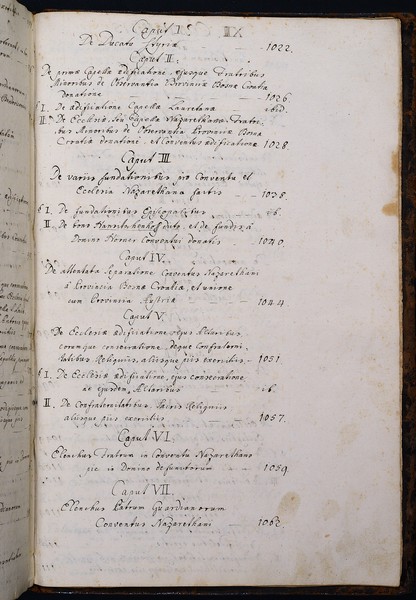 Caput I.
De Ducatu Styriæ 1022.
Caput II.
De prima Capellæ ædificatione, ejusque Fratribus
Minoribus de Observantia Provinciæ Bosnæ Croatiæ
Donatione 1026.
§ I. De ædificatione Capellæ Lauretanæ ibid.
II. De Ecclesiæ, seu Capellæ Nazarethanæ Fratri-
bus Minoribus de Observantia Provinciæ Bosnæ
Croatiæ donatione, et Conventus ædificatione 1028.
Caput III.
De variis fundationibus pro Conventu et
Ecclesia Nazarethana factis 1038.
§ I. De fundationibus Episcopalibus ib.
II. De bono dicto, et de fundis, à
Domino Conventui donatis 1040.
Caput IV.
De attentata separatione Conventus Nazarethani
à Provincia Bosnæ Croatiæ, et unione
cum Provincia Austriæ 1044.
Caput V.
De Ecclesiæ ædificatione, ejus Altaribus
eorumque consecratione, deque Confraterni-
tatibus Reliquiis, aliisque piis exercitiis 1051.
§ I. De Ecclesiæ ædificatione, ejus consecratione
ac ejusdem Altaribus ib.
II. De Confraternitatibus, Sacris Reliquiis
aliisque piis exercitiis 1057.
Caput VI.
Elenchus Fratrum in Conventu Nazarethano
pie in Domino defunctorum 1059.
Caput VII.
Elenchus Patrum Guardianorum
Conventus Nazarethani 1062.